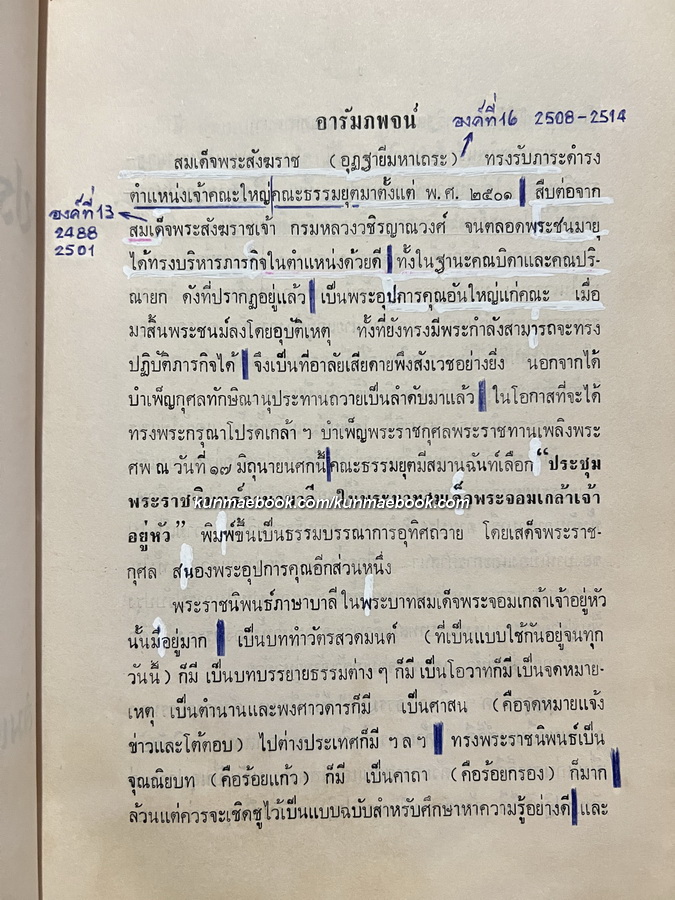 อารัมภพจน์ องค์ที่ 16 2508-2514
สมเด็จพระสังฆราช (อุฏฐายีมหาเถระ) ทรงรับภาระดำรง
ตำแหน่งเจ้าคณะใหญ่คณะธรรมยุตมาตั้งแต่ พ.ศ. ๒๕๐๑ สืบต่อจาก
องค์ที่ 13
2488
2501
สมเด็จพระสังฆราชเจ้า กรมหลวงวชิรญาณวงศ์ จนตลอดพระชนมายุ
ได้ทรงบริหารภารกิจในตำแหน่งด้วยดี ทั้งในฐานะคณบิดาและคณปริ-
ณายก ดังที่ปรากฏอยู่แล้ว เป็นพระอุปการคุณอันใหญ่แก่คณะ เมื่อ
มาสิ้นพระชนม์ลงโดยอุบัติเหตุ ทั้งที่ยังทรงมีพระกำลังสามารถจะทรง
ปฏิบัติภารกิจได้ จึงเป็นที่อาลัยเสียดายพึงสังเวชอย่างยิ่ง นอกจากได้
บำเพ็ญกุศลทักษิณานุประทานถวายเป็นลำดับมาแล้ว ในโอกาสที่จะได้
ทรงพระกรุณาโปรดเกล้า ฯ บำเพ็ญพระราชกุศลพระราชทานเพลิงพระ
ศพ ณ วันที่ ๑๗ มิถุนายนศกนี้ คณะธรรมยุตมีสมานฉันท์เลือก “ประชุม
พระราชนิพนธ์ภาษาบาลี ในพระบาทสมเด็จพระจอมเกล้าเจ้า
kunmaebook.com/kunmaebook.com
อยู่หัว” พิมพ์ขึ้นเป็นธรรมบรรณาการอุทิศถวาย โดยเสด็จพระราช-
กุศล สนองพระอุปการคุณอีกส่วนหนึ่ง
พระราชนิพนธ์ภาษาบาลี ในพระบาทสมเด็จพระจอมเกล้าเจ้าอยู่หัว
นั้นมีอยู่มาก เป็นบททำวัตรสวดมนต์ (ที่เป็นแบบใช้กันอยู่จนทุก
วันนี้) ก็มี เป็นบทบรรยายธรรมต่าง ๆ ก็มี เป็นโอวาทก็มี เป็นจดหมาย-
เหตุ เป็นตำนานและพงศาวดารก็มี เป็นศาสน (คือจดหมายแจ้ง
ข่าวและโต้ตอบ) ไปต่างประเทศก็มี ฯ ล ฯ ทรงพระราชนิพนธ์เป็น
จุณณิยบท (คือร้อยแก้ว) ก็มี เป็นคาถา (คือร้อยกรอง) ก็มาก
ล้วนแต่ควรจะเชิดชูไว้เป็นแบบฉบับสำหรับศึกษาหาความรู้อย่างดี และ